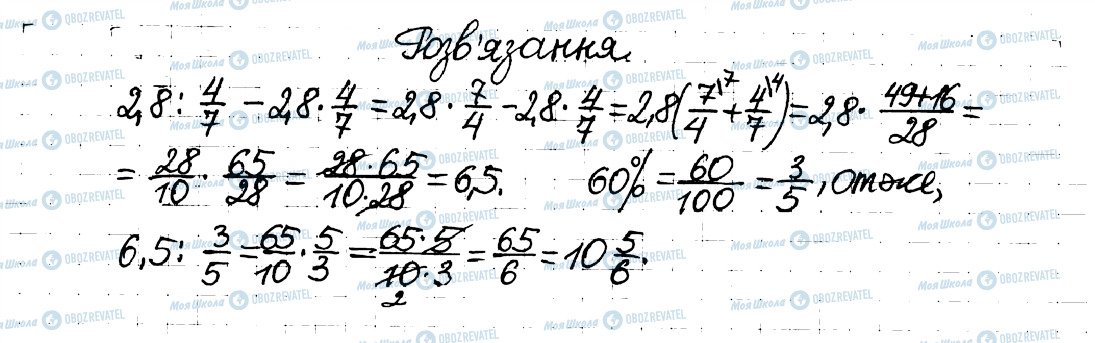 Розв'язання.
2,8 : 4/7 − 2,8 · 4/7 = 2,8 · 7/4 − 2,8 · 4/7 = 2,8(7/4\7 + 4/7\4) = 2,8 · 49+16/28 =
= 28/10 · 65/28 = 28·65/10·28 = 6,5. 60% = 60/100 = 3/5, Отже,
6,5 : 3/5 = 65/10 · 5/3 = 65·5/10·3 = 65/6 = 10 5/6.
2